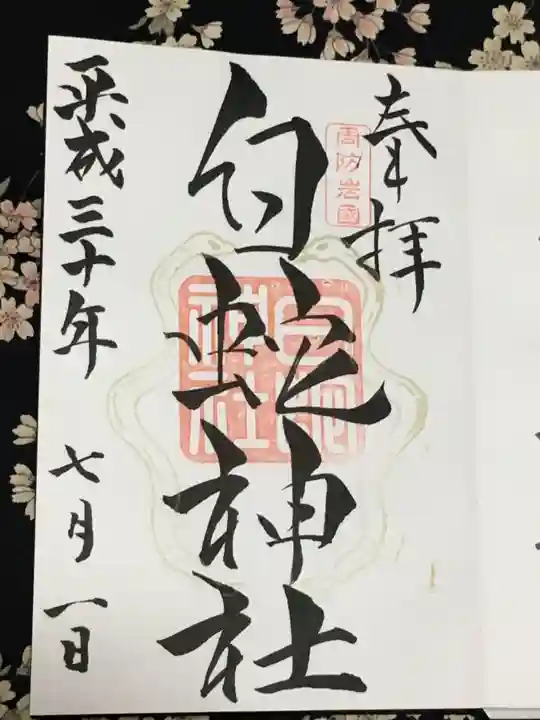 奉拝
周防岩國
白蛇神社
平成三十年 七月一日